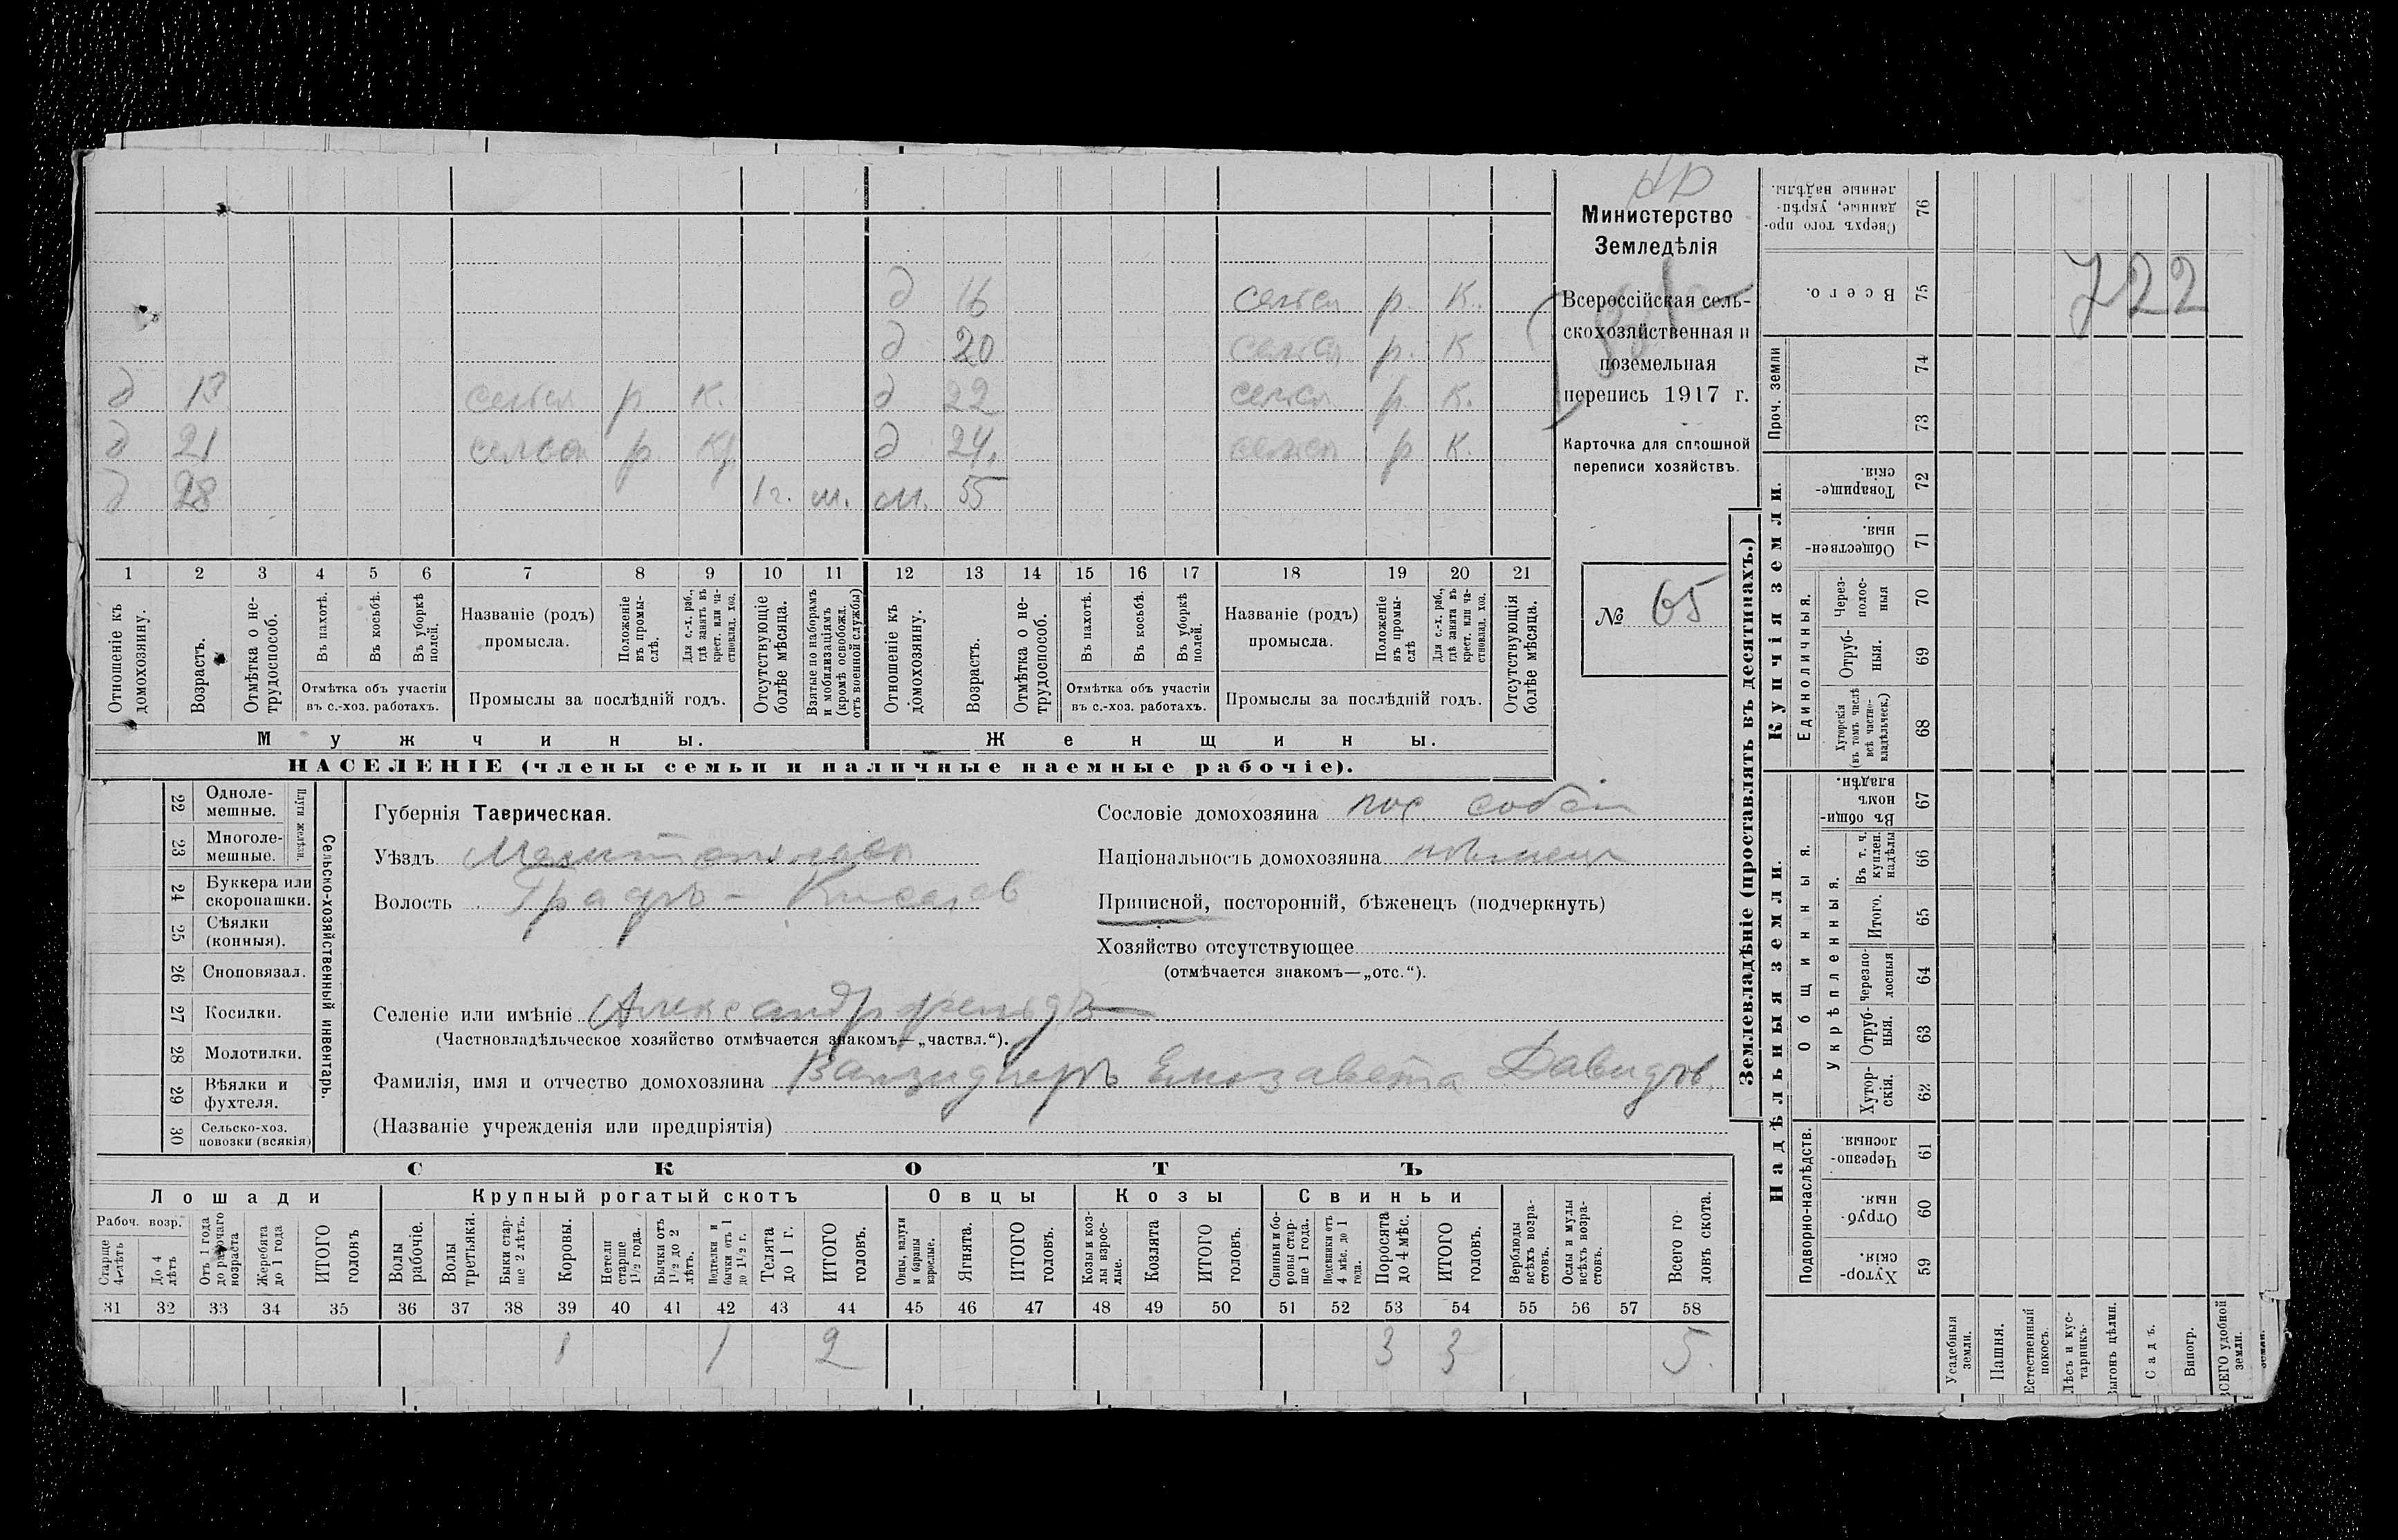 НР
Министерство
Земледѣлія
Всероссійская сель-
скохозяйственная и
поземельная
перепись 1917 г.
Карточка для сплошной
переписи хозяйствъ.
№ 65
д 16 р. К.
д 20 р. К
д 13 р К. д 22 р. К.
д 21 р. д 24. р К.
д 28 1 г. м. м. 55
1 2 3 4 5 6 7 8 9 10 11 12 13 14 15 16 17 18 19 20 21
Отношеніе къ домохозяину.
Возрастъ.
Отмѣтка о не-трудоспособ.
Въ пахотѣ.
Въ косьбѣ.
Въ уборкѣ полей.
Отмѣтка объ участіи
въ с.-хоз. работахъ.
Названіе (родъ)
промысла.
Положеніе въ промы-слѣ.
Для с.-х. раб., гдѣ занятъ въ крест. или ча-стновлад. хоз.
Промыслы за послѣдній годъ.
Отсутствующіе болѣе мѣсяца.
Взятые по наборамъ и мобилизаціямъ (кромѣ освобожд. отъ военной службы)
Отношеніе къ домохозяину.
Возрастъ.
Отмѣтка о не-трудоспособ.
Въ пахотѣ.
Въ косьбѣ.
Въ уборкѣ полей.
Отмѣтка объ участіи
въ с.-хоз. работахъ.
Названіе (родъ)
промысла.
Положеніе въ промы-слѣ
Для с.-х. раб., гдѣ занята въ крест. или ча-стновлад. хоз.
Промыслы за послѣдній годъ.
Отсутствующія болѣе мѣсяца.
Мужчины. Женщины.
НАСЕЛЕНІЕ (члены семьи и наличные наемные рабочіе).
22 Одноле-мешные.
23 Многоле-мешные.
Плуги желѣзн.
24 Буккера или скоропашки.
25 Сѣялки (конныя).
26 Сноповязал.
27 Косилки.
28 Молотилки.
29 Вѣялки и фухтеля.
30 Сельско-хоз. повозки (всякія)
Сельско-хозяйственный инвентарь.
Губернія Таврическая.
Уѣздъ
Волость Графъ-Киселев
Сословіе домохозяина пос. собств
Національность домохозяина нѣмецъ
Приписной, посторонній, бѣженецъ (подчеркнуть)
Хозяйство отсутствующее
(отмѣчается знакомъ—„отс.“).
Селеніе или имѣніе Александрфельдъ
(Частновладѣльческое хозяйство отмѣчается знакомъ—„частвл.“).
Фамилія, имя и отчество домохозяина Ванзидлеръ Елизавета Давидов.
(Названіе учрежденія или предпріятія)
СКОТЪ
Лошади Крупный рогатый скотъ Овцы Козы Свиньи
Рабоч. возр.
Старше 4-лѣтъ
До 4 лѣтъ
Отъ 1 года до рабочаго возраста
Жеребята до 1 года
ИТОГО головъ
Волы рабочіе.
Волы третьяки.
Быки стар-ше 2 лѣтъ.
Коровы.
Нетели старше 1½ года.
Бычки отъ 1½ до 2 лѣтъ.
Подтелки и бычки отъ 1 до 1½ г.
Телята до 1 г.
ИТОГО головъ.
Овцы, валухи и бараны взрослые.
Ягнята.
ИТОГО головъ.
Козы и коз-лы взрос-лые.
Козлята
ИТОГО головъ.
Свиньи и бо-ровы стар-ше 1 года.
Подсвинки отъ 4 мѣс. до 1 года.
Поросята до 4 мѣс.
ИТОГО головъ.
Верблюды всѣхъ возра-стовъ.
Ослы и мулы всѣхъ возра-стовъ.
Всего го-ловъ скота.
31 32 33 34 35 36 37 38 39 40 41 42 43 44 45 46 47 48 49 50 51 52 53 54 55 56 57 58
1 1 2 3 3 5.
Землевладѣніе (проставлять въ десятинахъ.)
Купчія земли.
Надѣльныя земли.
Сверхъ того про-данные, укрѣп-ленные надѣлы. 76
Всего. 75
722
Проч. земли 74 73
Товарище-скія. 72
Обществен-ныя. 71
Единоличныя.
Через-полос-ныя 70
Отруб-ныя. 69
Хуторскія (въ томъ числѣ всѣ частно-владѣльческ.) 68
Общинныя.
Въ общи-номъ владѣн. 67
Укрѣпленныя.
Въ т. ч. куплен. надѣлы 66
Итого. 65
Черезпо-лосныя 64
Отруб-ныя. 63
Хутор-скія. 62
Подворно-наслѣдств.
Черезпо-лосныя. 61
Отруб-ныя. 60
Хутор-скія. 59
Усадебныя земли.
Пашня.
Естественный покосъ.
Лѣсъ и кус-тарникъ.
Выгонъ цѣлин.
Садъ.
Виногр.
ВСЕГО удобной земли.